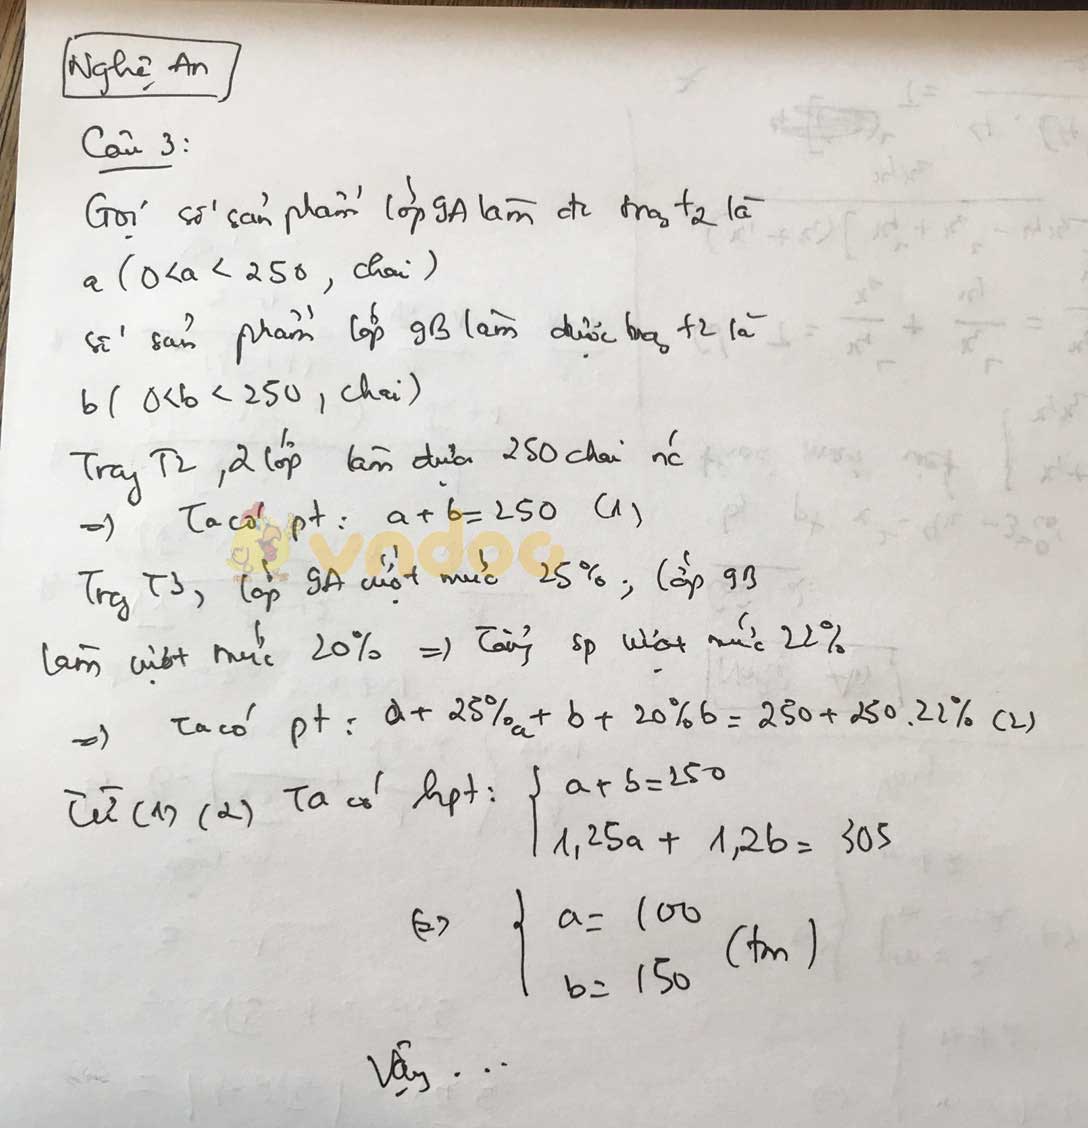 Nghệ An
Câu 3:
Gọi số sản phẩm lớp 9A làm đc trog t2 là
a (0<a<250, chai)
số sản phẩm lớp 9B làm được trog t2 là
b( 0<b<250, chai)
Trog T2, 2 lớp làm được 250 chai nc
=) Ta có pt: a+b=250 (1)
vndoc
Trog T3, lớp 9A vượt mức 25%, lớp 9B
làm vượt mức 20% =) Tổng sp vượt mức 22%
=) Ta có pt: a+25%a+b+20%b=250+250.22% (2)
Từ (1) (2) Ta có hpt: { a+b=250
1,25a + 1,2b = 305
(=) { a= 100
b= 150 (tm)
Vậy ...